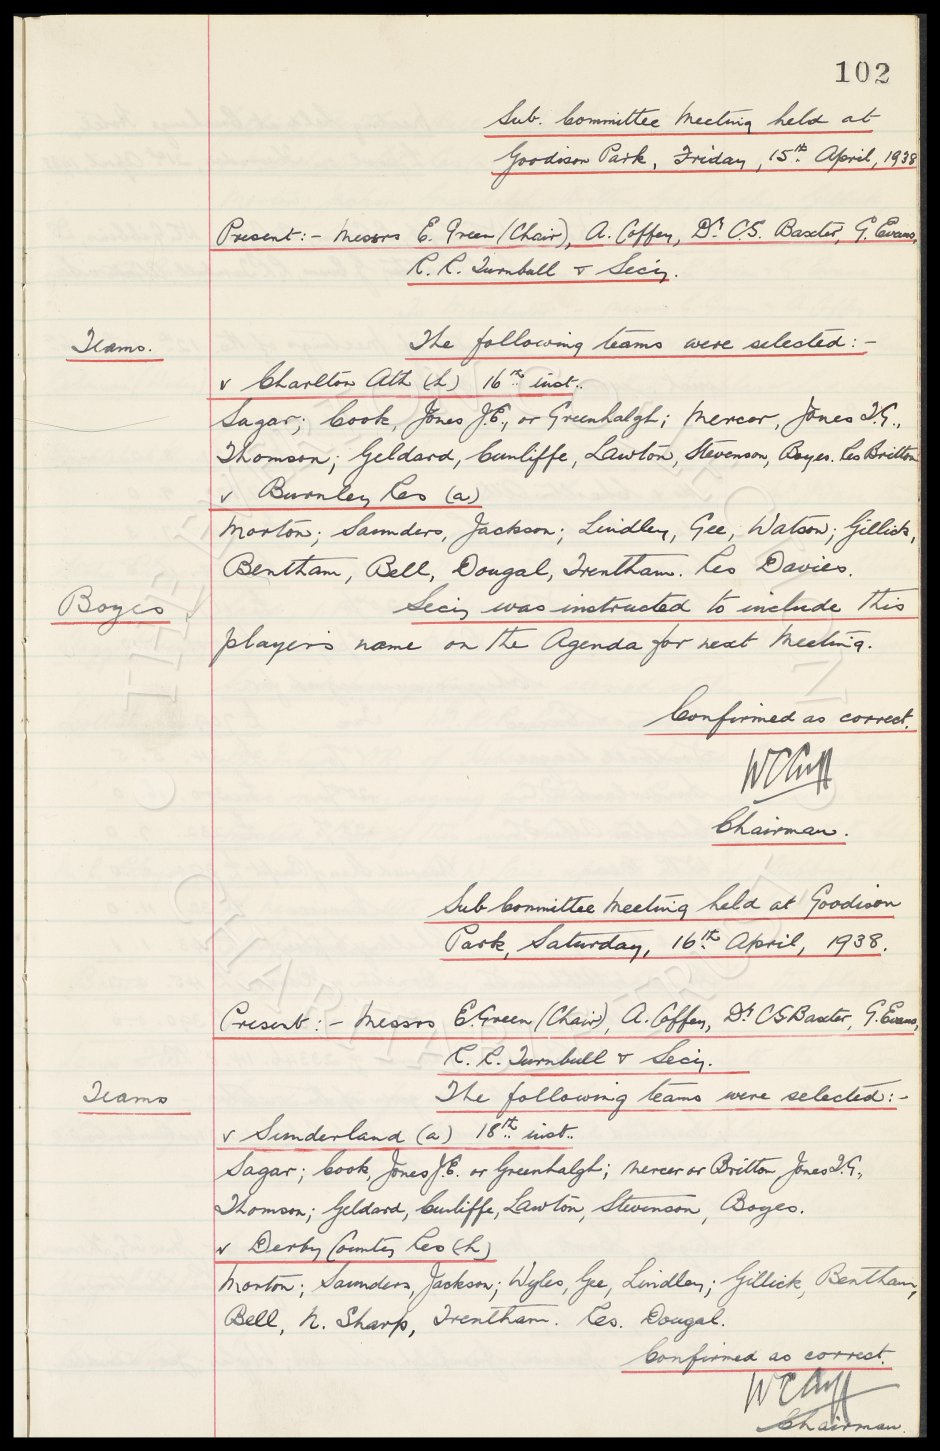 102
Sub. Committee Meeting held at
Goodison Park, Friday, 15th April, 1938
Present:- Messrs E. Green (Chair), A. Coffey, Dr C.S. Baxter, G. Evans,
R. R. Turnbull & Secy.
Teams. The following teams were selected:-
v Charlton Ath (h) 16th inst.
Sagar; Cook, Jones J.E., or Greenhalgh; Mercer, Jones T.G.,
Thomson; Geldard, Cunliffe, Lawton, Stevenson, Boyes. Res Britton
v Burnley Res (a)
Morton; Saunders, Jackson; Lindley, Gee, Watson; Gillick,
Bentham, Bell, Dougal, Trentham. Res Davies.
Boyes Secy was instructed to include this
player's name on the Agenda for next Meeting.
Confirmed as correct.
WCCuff
Chairman.
Sub Committee Meeting held at Goodison
Park, Saturday, 16th April, 1938.
Present:- Messrs E. Green (Chair), A. Coffey, Dr C S Baxter, G. Evans,
R. R. Turnbull & Secy.
Teams The following teams were selected:-
v Sunderland (a) 18th inst.
Sagar; Cook, Jones J.E. or Greenhalgh; Mercer or Britton Jones T.G.,
Thomson; Geldard, Cunliffe, Lawton, Stevenson, Boyes.
v Derby County Res (h)
Morton; Saunders, Jackson; Wyles, Gee, Lindley; Gillick, Bentham,
Bell, N. Sharp, Trentham. Res. Dougal.
Confirmed as correct.
WCCuff
Chairman.